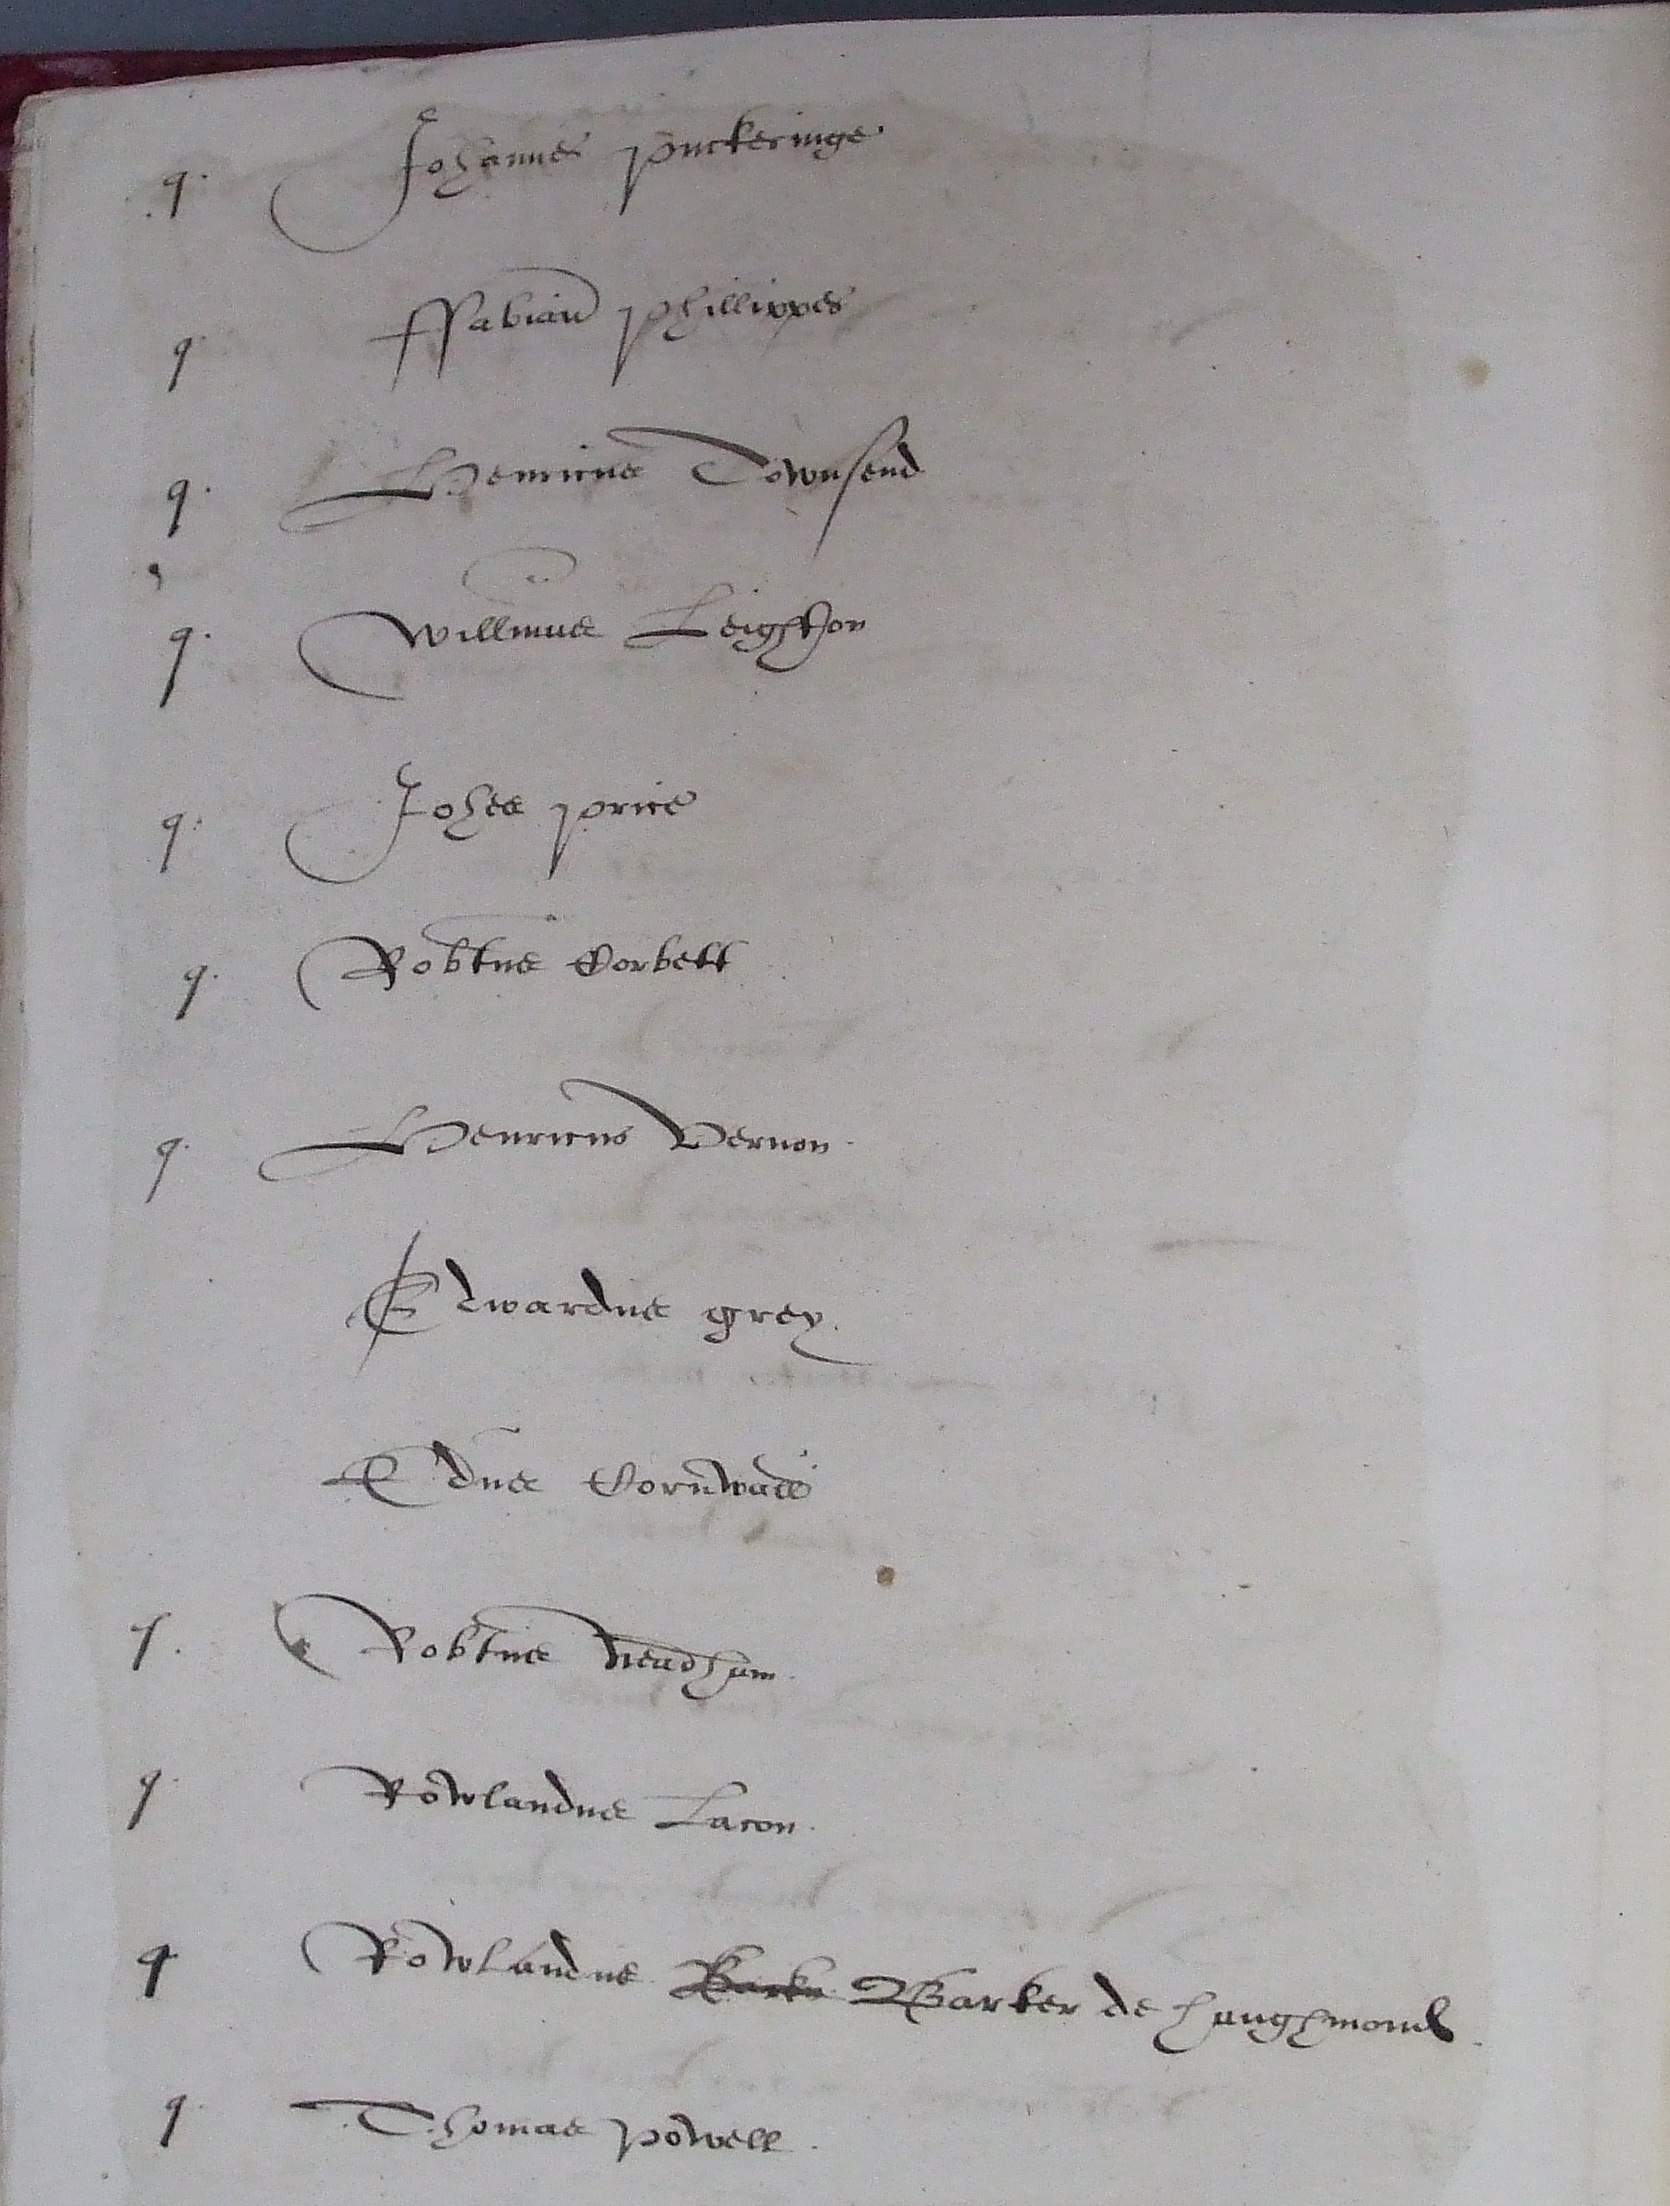 q. Johannes Puckeringe
q. ffabian Phillippes
q. Henricus Townsend
q. Willmus Leighton
q. Johes Price
q. Robtus Corbett
q. Henricus Vernon
Edwardus Grey
Edus Cornwall
q. Robtus Needham
q. Rowlandus Lacon
q Rowlandus Barker Barker de Haughmond
q. Thomas Powell